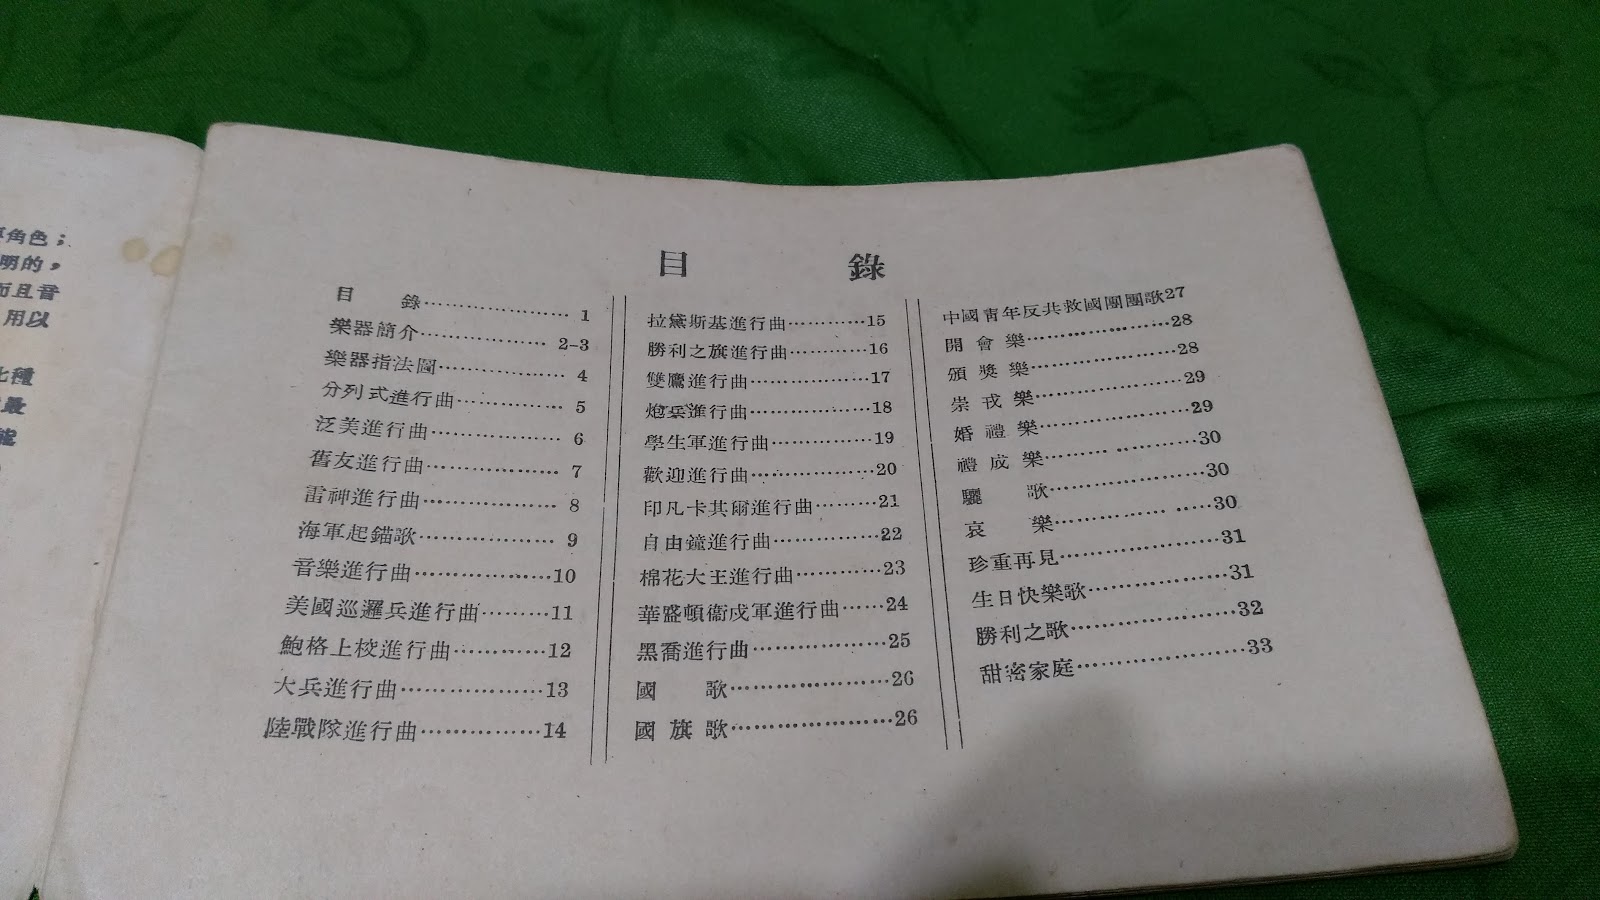 角色；
明的，
而且音
用以
七種
最
能
目　　錄
目　　錄…………………1
樂器簡介………………2-3
樂器指法圖………………4
分列式進行曲……………5
泛美進行曲………………6
舊友進行曲………………7
雷神進行曲………………8
海軍起錨歌………………9
音樂進行曲………………10
美國巡邏兵進行曲………11
鮑格上校進行曲…………12
大兵進行曲………………13
陸戰隊進行曲……………14
拉黛斯基進行曲…………15
勝利之旗進行曲…………16
雙鷹進行曲………………17
炮兵進行曲………………18
學生軍進行曲……………19
歡迎進行曲………………20
印凡卡其爾進行曲………21
自由鐘進行曲……………22
棉花大王進行曲…………23
華盛頓衞戍軍進行曲……24
黑喬進行曲………………25
國　　歌…………………26
國 旗 歌…………………26
中國青年反共救國團團歌27
開 會 樂…………………28
頒 獎 樂…………………28
崇 戎 樂…………………29
婚 禮 樂…………………29
禮 成 樂…………………30
驪　　歌…………………30
哀　　樂…………………30
珍重再見…………………31
生日快樂歌………………31
勝利之歌…………………32
甜密家庭…………………33